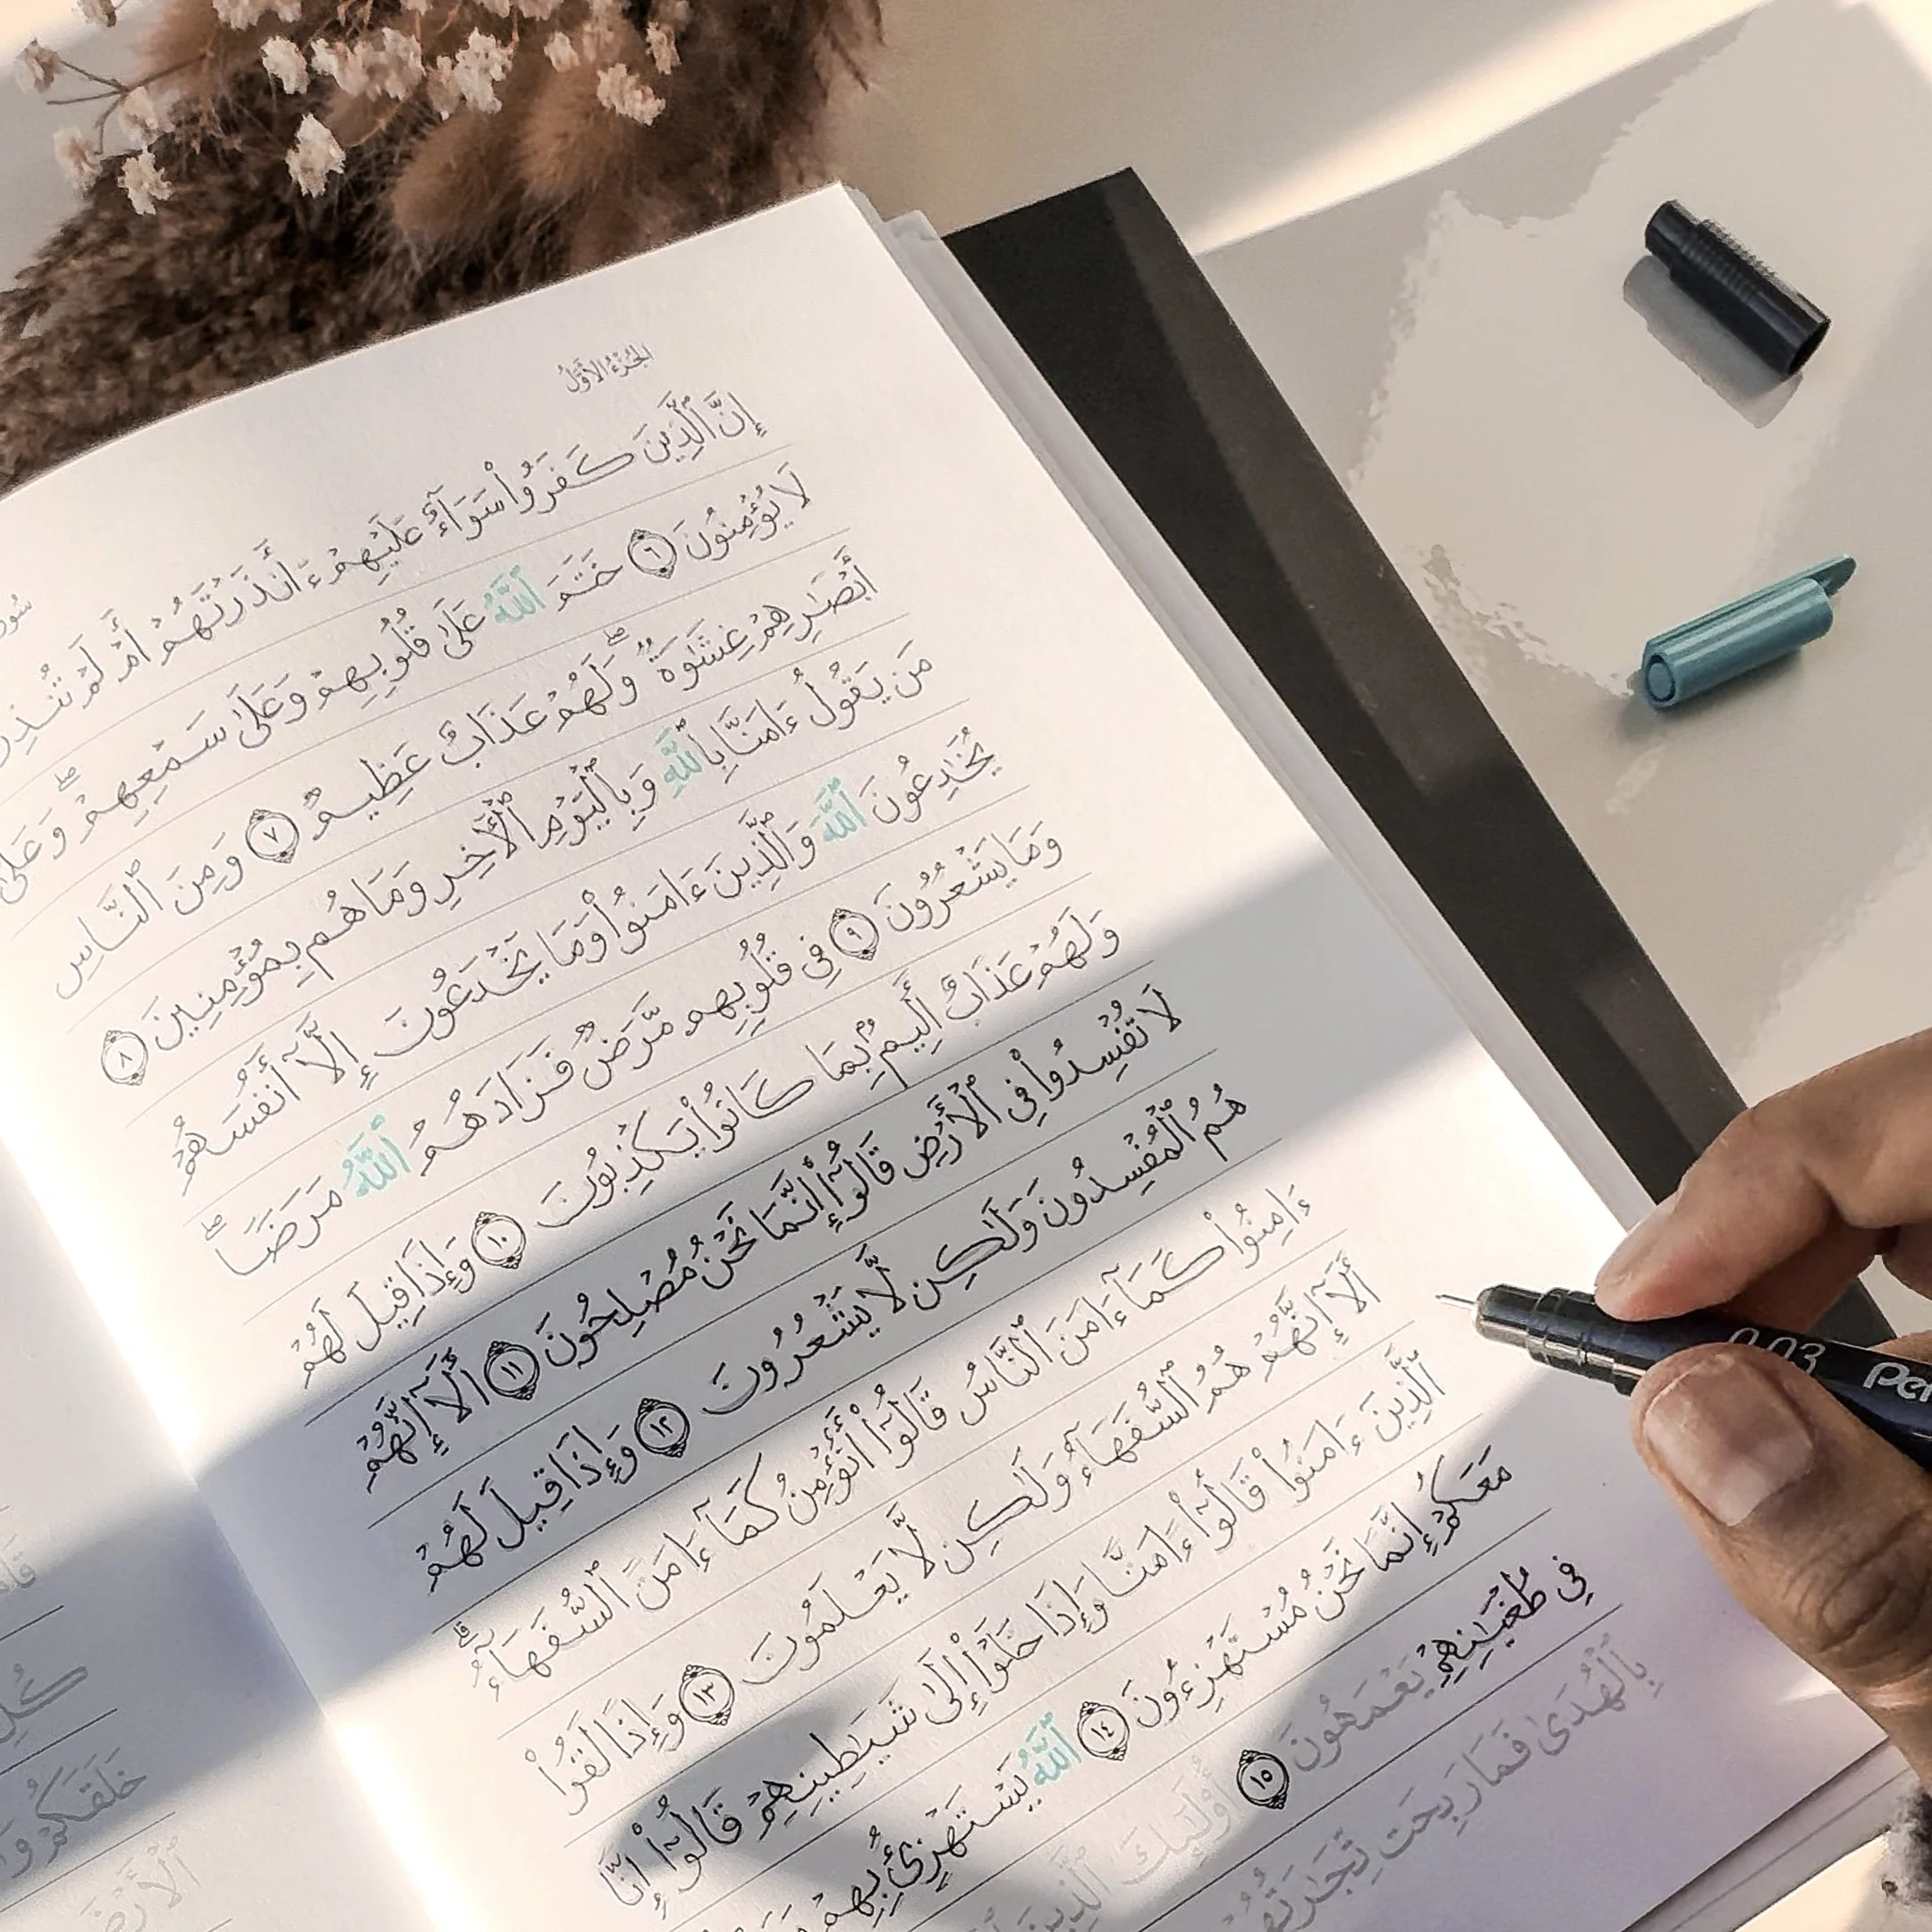 الجُزْءُ الأَوَّلُ
إِنَّ ٱلَّذِينَ كَفَرُوا۟ سَوَآءٌ عَلَيْهِمْ ءَأَنذَرْتَهُمْ أَمْ لَمْ
لَا يُؤْمِنُونَ ٦ خَتَمَ ٱللَّهُ عَلَىٰ قُلُوبِهِمْ وَعَلَىٰ سَمْعِهِمْ ۖ وَعَلَىٰٓ
أَبْصَـٰرِهِمْ غِشَـٰوَةٌ ۖ وَلَهُمْ عَذَابٌ عَظِيمٌ ٧ وَمِنَ ٱلنَّاسِ
مَن يَقُولُ ءَامَنَّا بِٱللَّهِ وَبِٱلْيَوْمِ ٱلْـَٔاخِرِ وَمَا هُم بِمُؤْمِنِينَ ٨
يُخَـٰدِعُونَ ٱللَّهَ وَٱلَّذِينَ ءَامَنُوا۟ وَمَا يَخْدَعُونَ إِلَّآ أَنفُسَهُمْ
وَمَا يَشْعُرُونَ ٩ فِى قُلُوبِهِم مَّرَضٌ فَزَادَهُمُ ٱللَّهُ مَرَضًا ۖ
وَلَهُمْ عَذَابٌ أَلِيمٌۢ بِمَا كَانُوا۟ يَكْذِبُونَ ١٠ وَإِذَا قِيلَ لَهُمْ
لَا تُفْسِدُوا۟ فِى ٱلْأَرْضِ قَالُوٓا۟ إِنَّمَا نَحْنُ مُصْلِحُونَ ١١ أَلَآ إِنَّهُمْ
هُمُ ٱلْمُفْسِدُونَ وَلَـٰكِن لَّا يَشْعُرُونَ ١٢ وَإِذَا قِيلَ لَهُمْ
ءَامِنُوا۟ كَمَآ ءَامَنَ ٱلنَّاسُ قَالُوٓا۟ أَنُؤْمِنُ كَمَآ ءَامَنَ ٱلسُّفَهَآءُ ۗ
أَلَآ إِنَّهُمْ هُمُ ٱلسُّفَهَآءُ وَلَـٰكِن لَّا يَعْلَمُونَ ١٣ وَإِذَا لَقُوا۟
ٱلَّذِينَ ءَامَنُوا۟ قَالُوٓا۟ ءَامَنَّا وَإِذَا خَلَوْا۟ إِلَىٰ شَيَـٰطِينِهِمْ قَالُوٓا۟ إِنَّا
مَعَكُمْ إِنَّمَا نَحْنُ مُسْتَهْزِءُونَ ١٤ ٱللَّهُ يَسْتَهْزِئُ بِهِمْ
فِى طُغْيَـٰنِهِمْ يَعْمَهُونَ ١٥ أُو۟لَـٰٓئِكَ ٱلَّذِينَ
بِٱلْهُدَىٰ فَمَا رَبِحَت تِّجَـٰرَتُهُمْ
خَلَقَكُمْ
ٱلْأَرْضَ
0.03